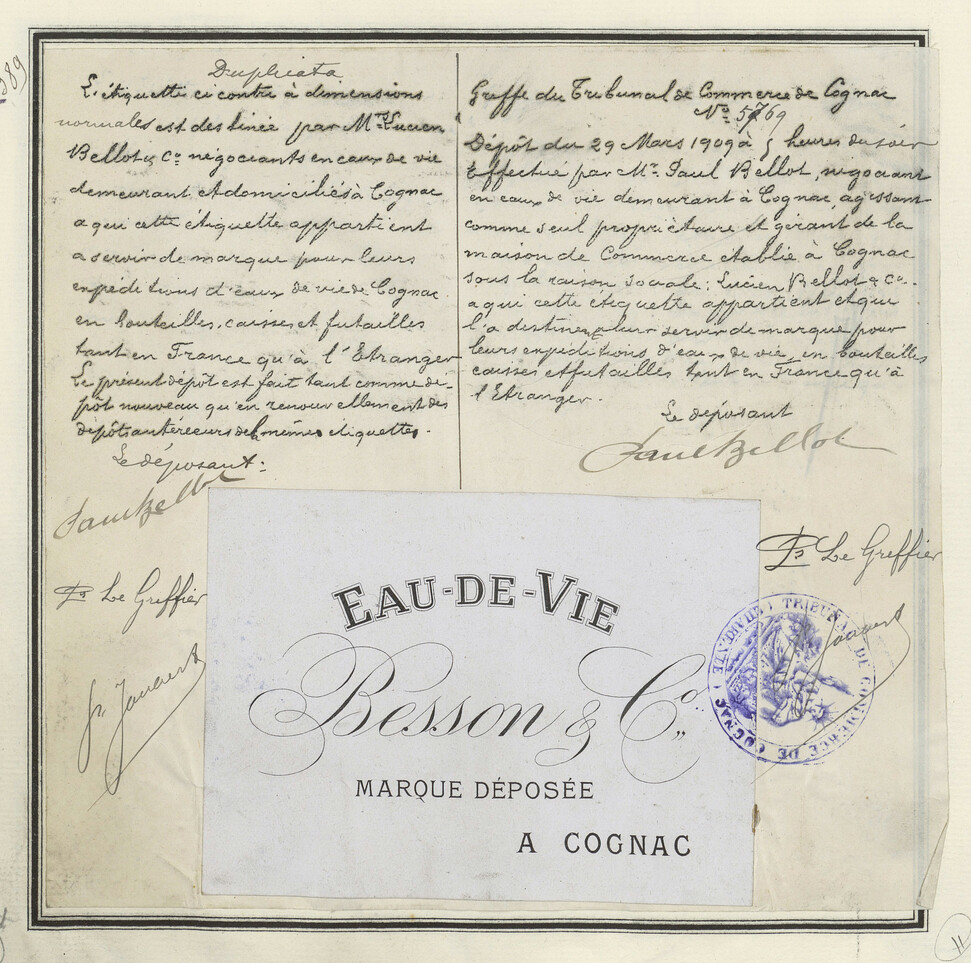 389
Duplicata
L'étiquette ci contre à dimensions
normales est destinée par Mrs Lucien
Bellot & Co négociants en eaux de vie
demeurant et domiciliés à Cognac
a qui cette étiquette appartient
a servir de marque pour leurs
expéditions d'eaux de vie de Cognac
en bouteilles, caisses et futailles
tant en France qu'à l'Etranger
Le présent dépôt est fait tant comme dé-
pôt nouveau qu'en renouvellement des
dépôts antérieurs de mêmes etiquettes.
Le déposant:
Paul Bellot
Pr Le Greffier
Greffe du Tribunal de Commerce de Cognac
No 5769
Dépôt du 29 Mars 1909 à 5 heures du soir
Effectué par Mr. Paul Bellot, négociant
en eaux de vie demeurant à Cognac, agissant
comme seul propriétaire et gérant de la
maison de Commerce établie à Cognac
sous la raison sociale: Lucien Bellot & Co.
a qui cette étiquette appartient et qui
l'a destinée a leur servir de marque pour
leurs expéditions d'eaux de vie en bouteilles
caisses et futailles tant en France qu'à
l'Etranger.
Le déposant
Paul Bellot
Pr Le Greffier
EAU-DE-VIE
Besson & Co.
MARQUE DÉPOSÉE
A COGNAC
TRIBUNAL DE COMMERCE DE COGNAC (CHARENTE)
11